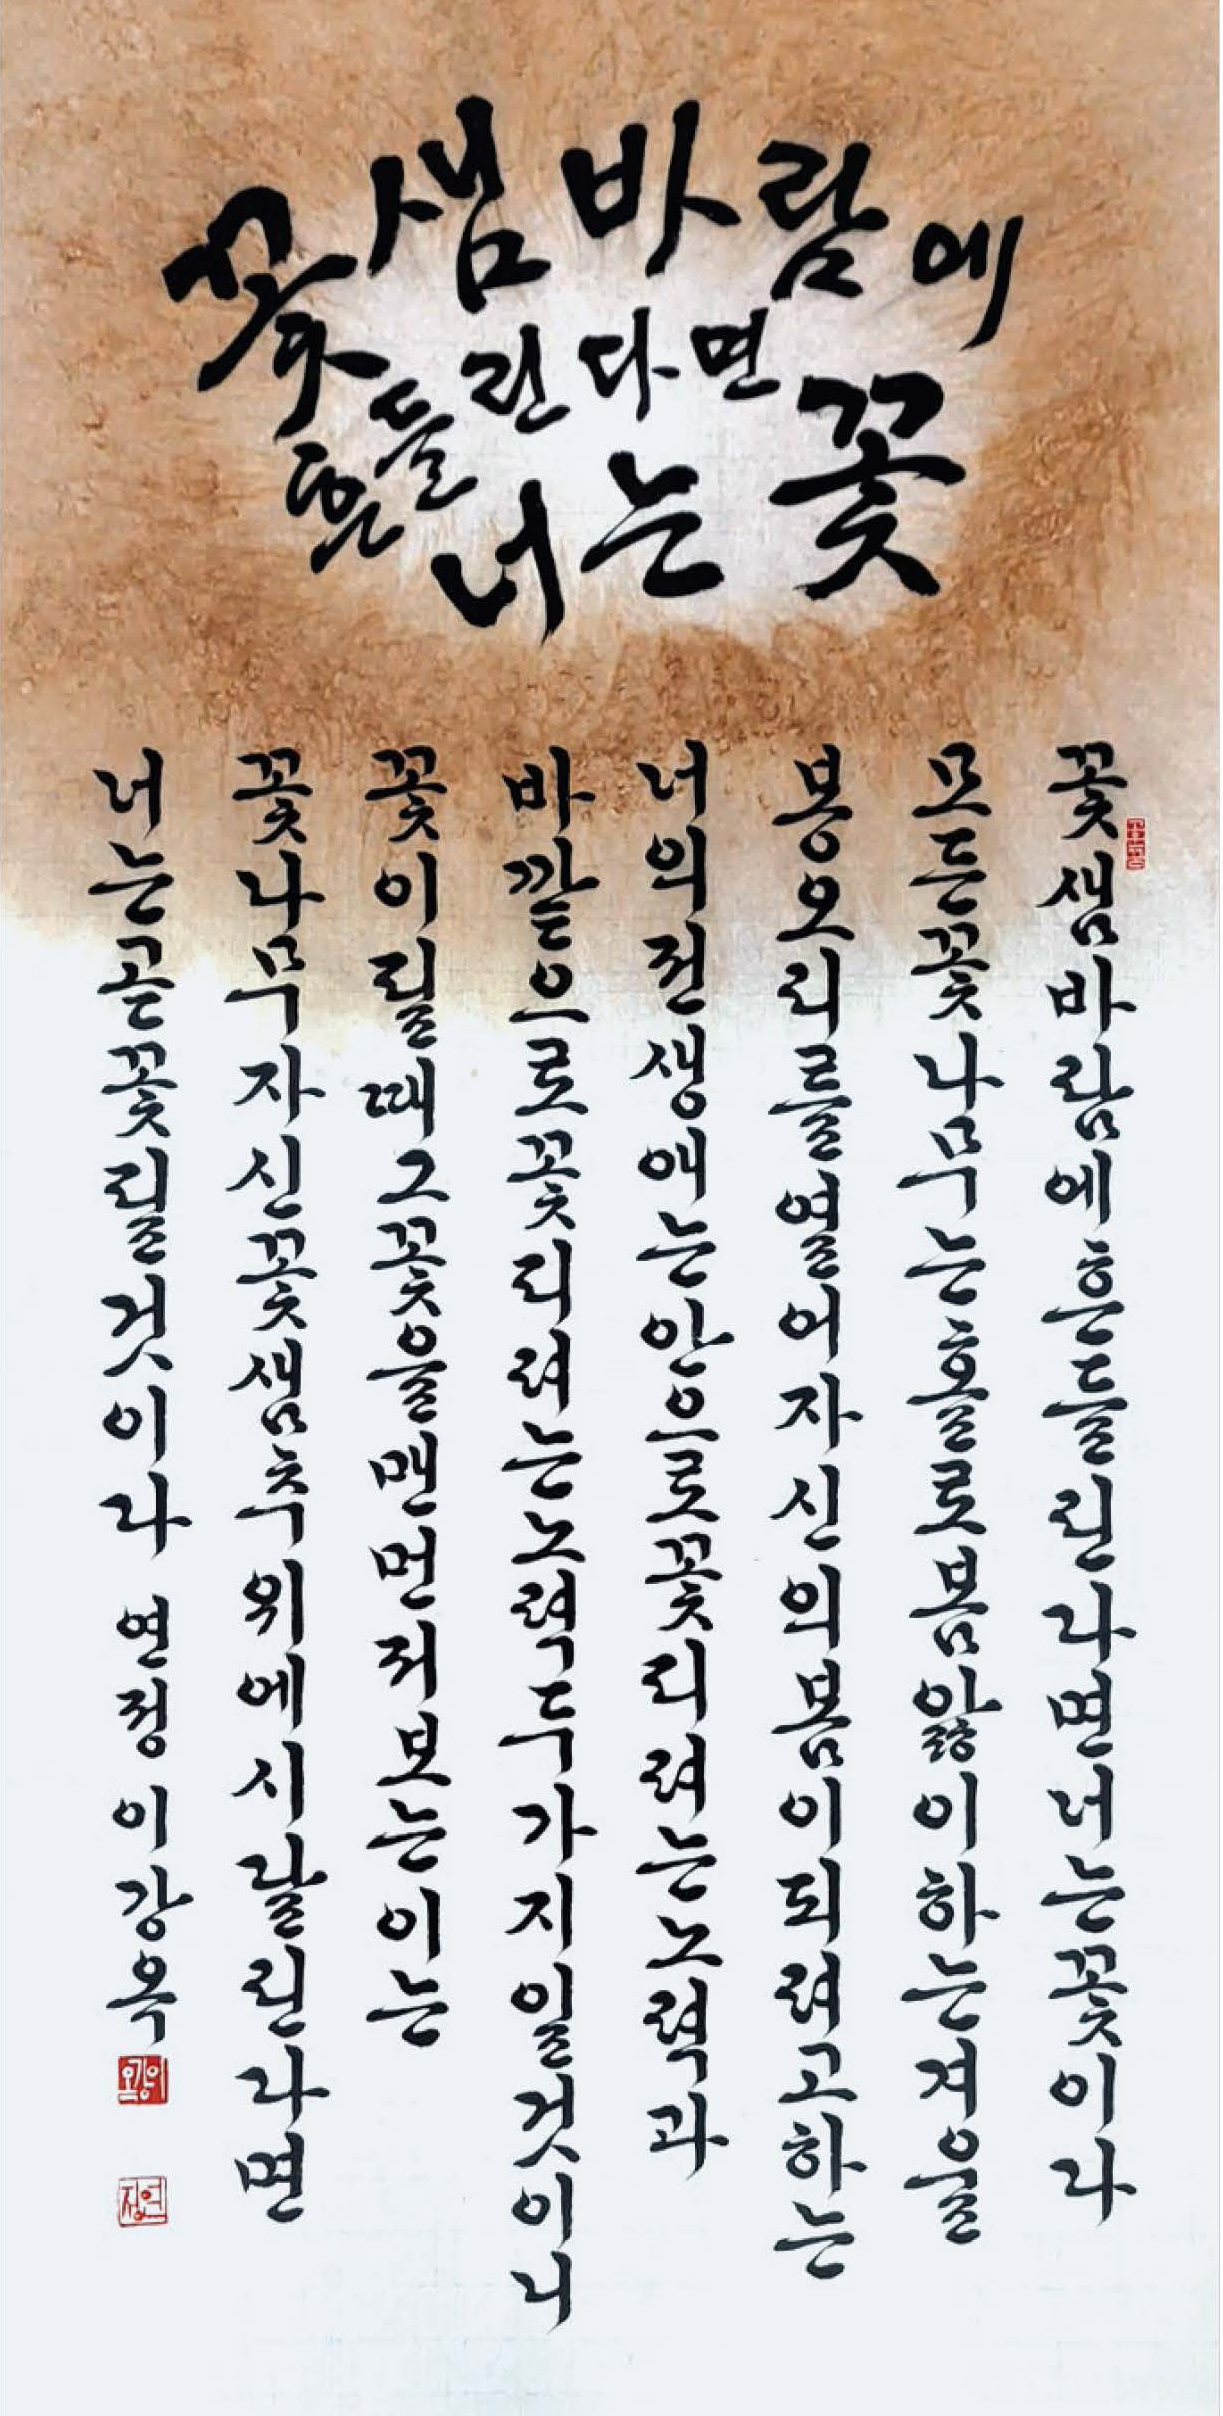 꽃샘바람에
흔들린다면
너는 꽃
꽃샘바람에흔들린다면너는꽃이다
모든꽃나무는홀로봄앓이하는겨울
봉오리를열어자신의봄이되려고하는
너의전생애는안으로꽃피려는노력과
바깥으로꽃피려는노력두가지일것이니
꽃이필때그꽃을맨먼저보는이는
꽃나무자신꽃샘추위에시달린다면
너는곧꽃필것이다 연정 이강옥
이강옥
연정